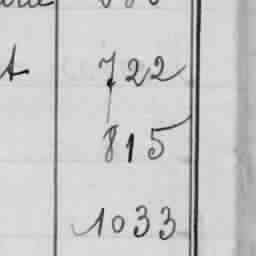 t 722
815
1033